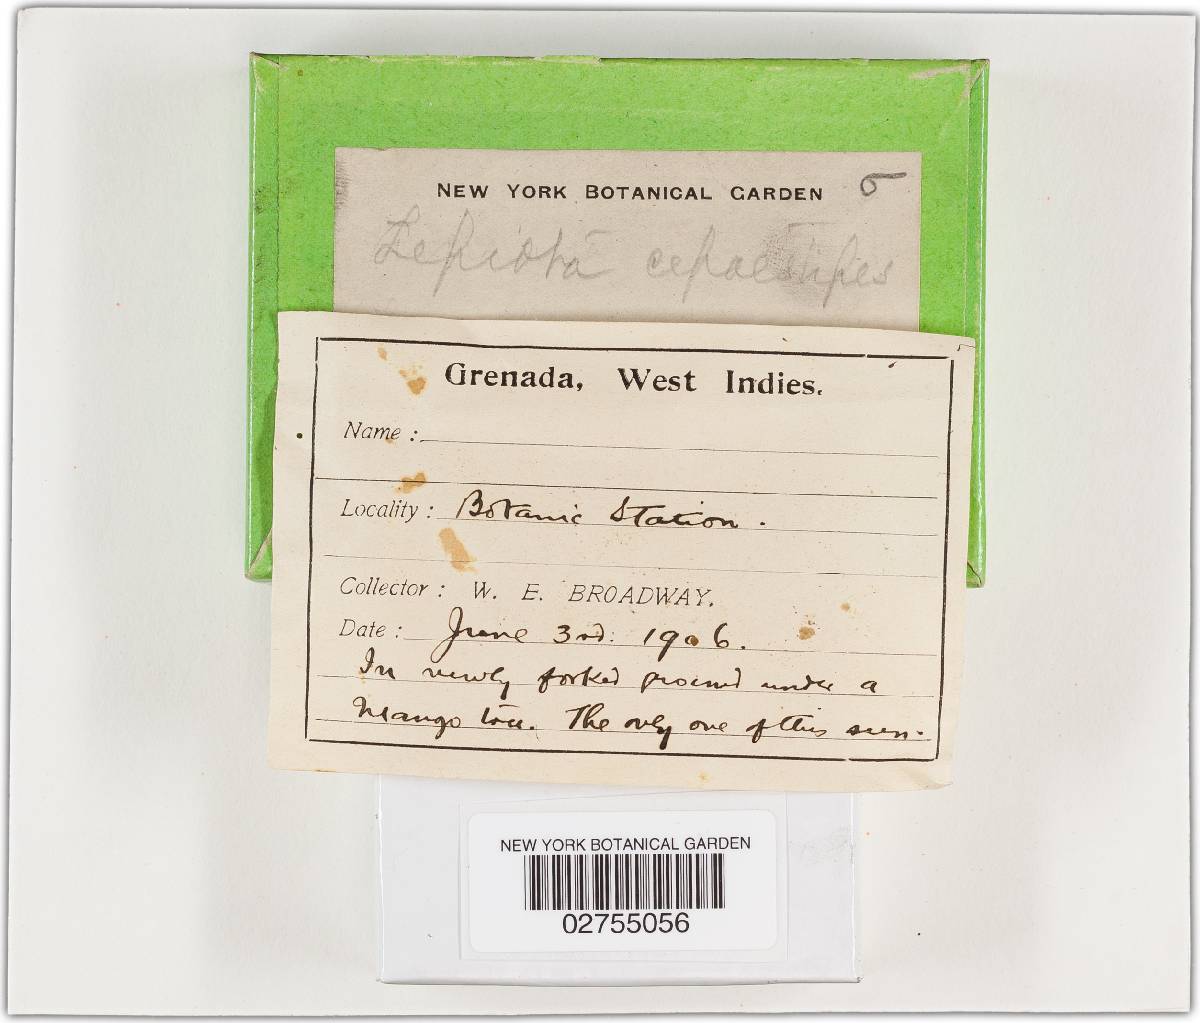 NEW YORK BOTANICAL GARDEN
Lepiota cepaestipes
Grenada, West Indies.
Name :
Locality : Botanic Station.
Collector : W. E. BROADWAY.
Date : June 3rd. 1906.
In newly forked ground under a
Mango tree. The only one of this seen.
NEW YORK BOTANICAL GARDEN
02755056